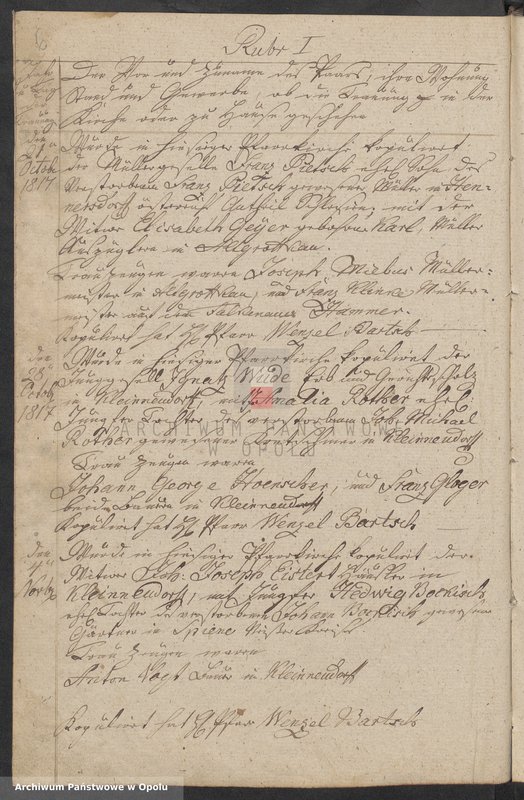 6
Rubr I
Der Vor und Zuname des Paars, ihre Wohnung
Stand und Gewerbe, ob die Trauung in der
Kirche oder zu Hause geschehen
den
Octobr
1817
Wurde in hiesiger Pfarrkirche kopulirt
der Müllergeselle Franz Pietsch ehel. Sohn des
Verstorbenen Franz Pietsch gewesener Müller in Hen-
nersdorf österreich Antheil Schlesien, mit der
Witwe Elisabeth Geyer gebohrne Karl, Müller
Auszüglerin in Altgrottkau.
Trauzeugen waren Joseph Miebus Müller-
meister in Altgrottkau, und Franz Klenke Müller-
meister aus dem Falkenauer Hammer.
Kopulirt hat H. Pfarr Wenzel Bartsch
den
28
Octobr
1817
Wurde in hiesiger Pfarrkirche kopulirt der
Junggesell Ignatz Wilde Erb und Gerichtsscholz
in Kleinneudorf, mit Amalia Rother ehel.
Jungfer Tochter des verstorbenen Joh. Michael
Rother gewesener Kretschmer in Kleinneudorf
Trauzeugen waren
Johann George Hoenscher, und Franz Gloger
beide Bauer in Kleinneudorf
Kopulirt hat H. Pfarr Wenzel Bartsch
den
4
Novbr
Wurde in hiesiger Pfarrkirche kopulirt der
Witwer Joh. Joseph Eistert Häusler in
Kleinneudorf, mit Jungfer Hedwig Boenisch
ehel. Tochter des verstorbenen Johann Boenisch gewesener
Gärtner in
Trauzeugen waren
Anton Vogt Bauer in Kleinneudorf
Kopulirt hat H. Pfarr Wenzel Bartsch
ARCHIWUM PAŃSTWOWE
W OPOLU
Archiwum Państwowe w Opolu